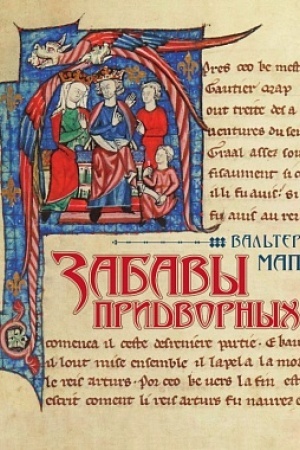 Pres ceo be mest
Gautier map
out treite des a
ventures du sei
Graal assez som
fisaument si co
il li fu avis. si
fu avis au rei
ВАЛЬТЕР
МАП
ЗАБАВЫ
ПРИДВОРНЫХ
comenca il ceste desreiere partie. E
il lout mise ensemble il lapela la mor
le reis arturs. Por ceo be vers la fin est
escrit coment li reis arturs fu navrez